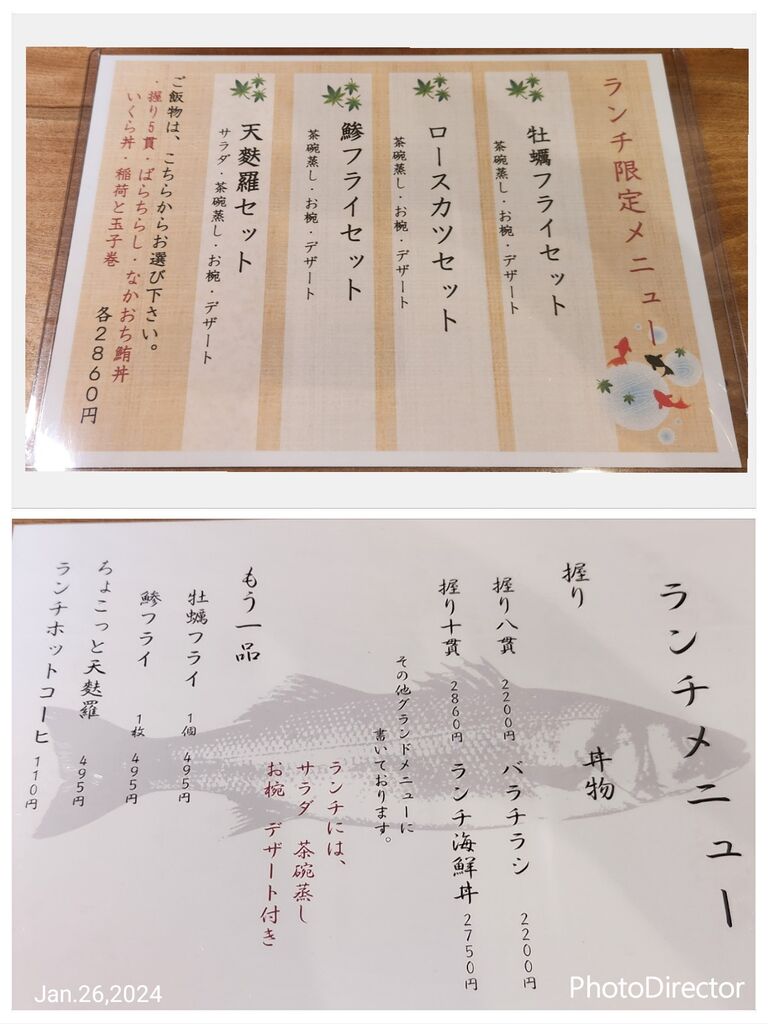 ランチ限定メニュー
牡蠣フライセット
茶碗蒸し・お椀・デザート
ロースカツセット
茶碗蒸し・お椀・デザート
鯵フライセット
茶碗蒸し・お椀・デザート
天麩羅セット
サラダ・茶碗蒸し・お椀・デザート
ご飯物は、こちらからお選び下さい。
・握り5貫・ばらちらし・なかおち鮪丼
いくら丼・稲荷と玉子巻
各2860円
ランチメニュー
握り
握り八貫 2200円
握り十貫 2860円
丼物
バラチラシ 2200円
ランチ海鮮丼 2750円
その他グランドメニューに
書いております。
ランチには、
サラダ 茶碗蒸し
お椀 デザート付き
もう一品
牡蠣フライ 1個 495円
鯵フライ 1枚 495円
ちょこっと天麩羅 495円
ランチホットコーヒ 110円
Jan.26,2024
PhotoDirector